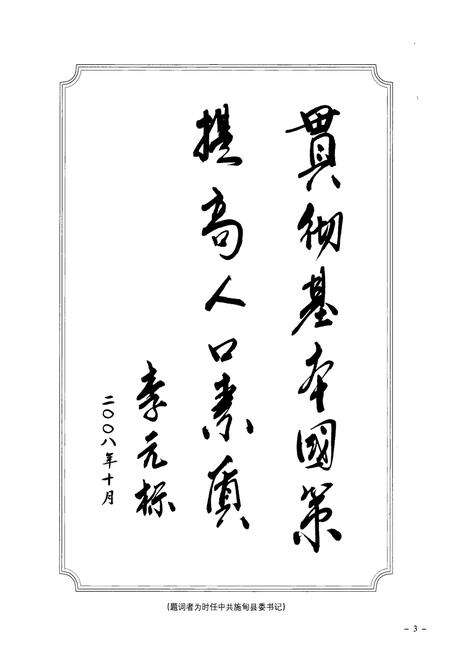 貫彻基本國策
提高人口素质
李元标
二〇〇八年十月
(题词者为时任中共施甸县委书记)
- 3 -